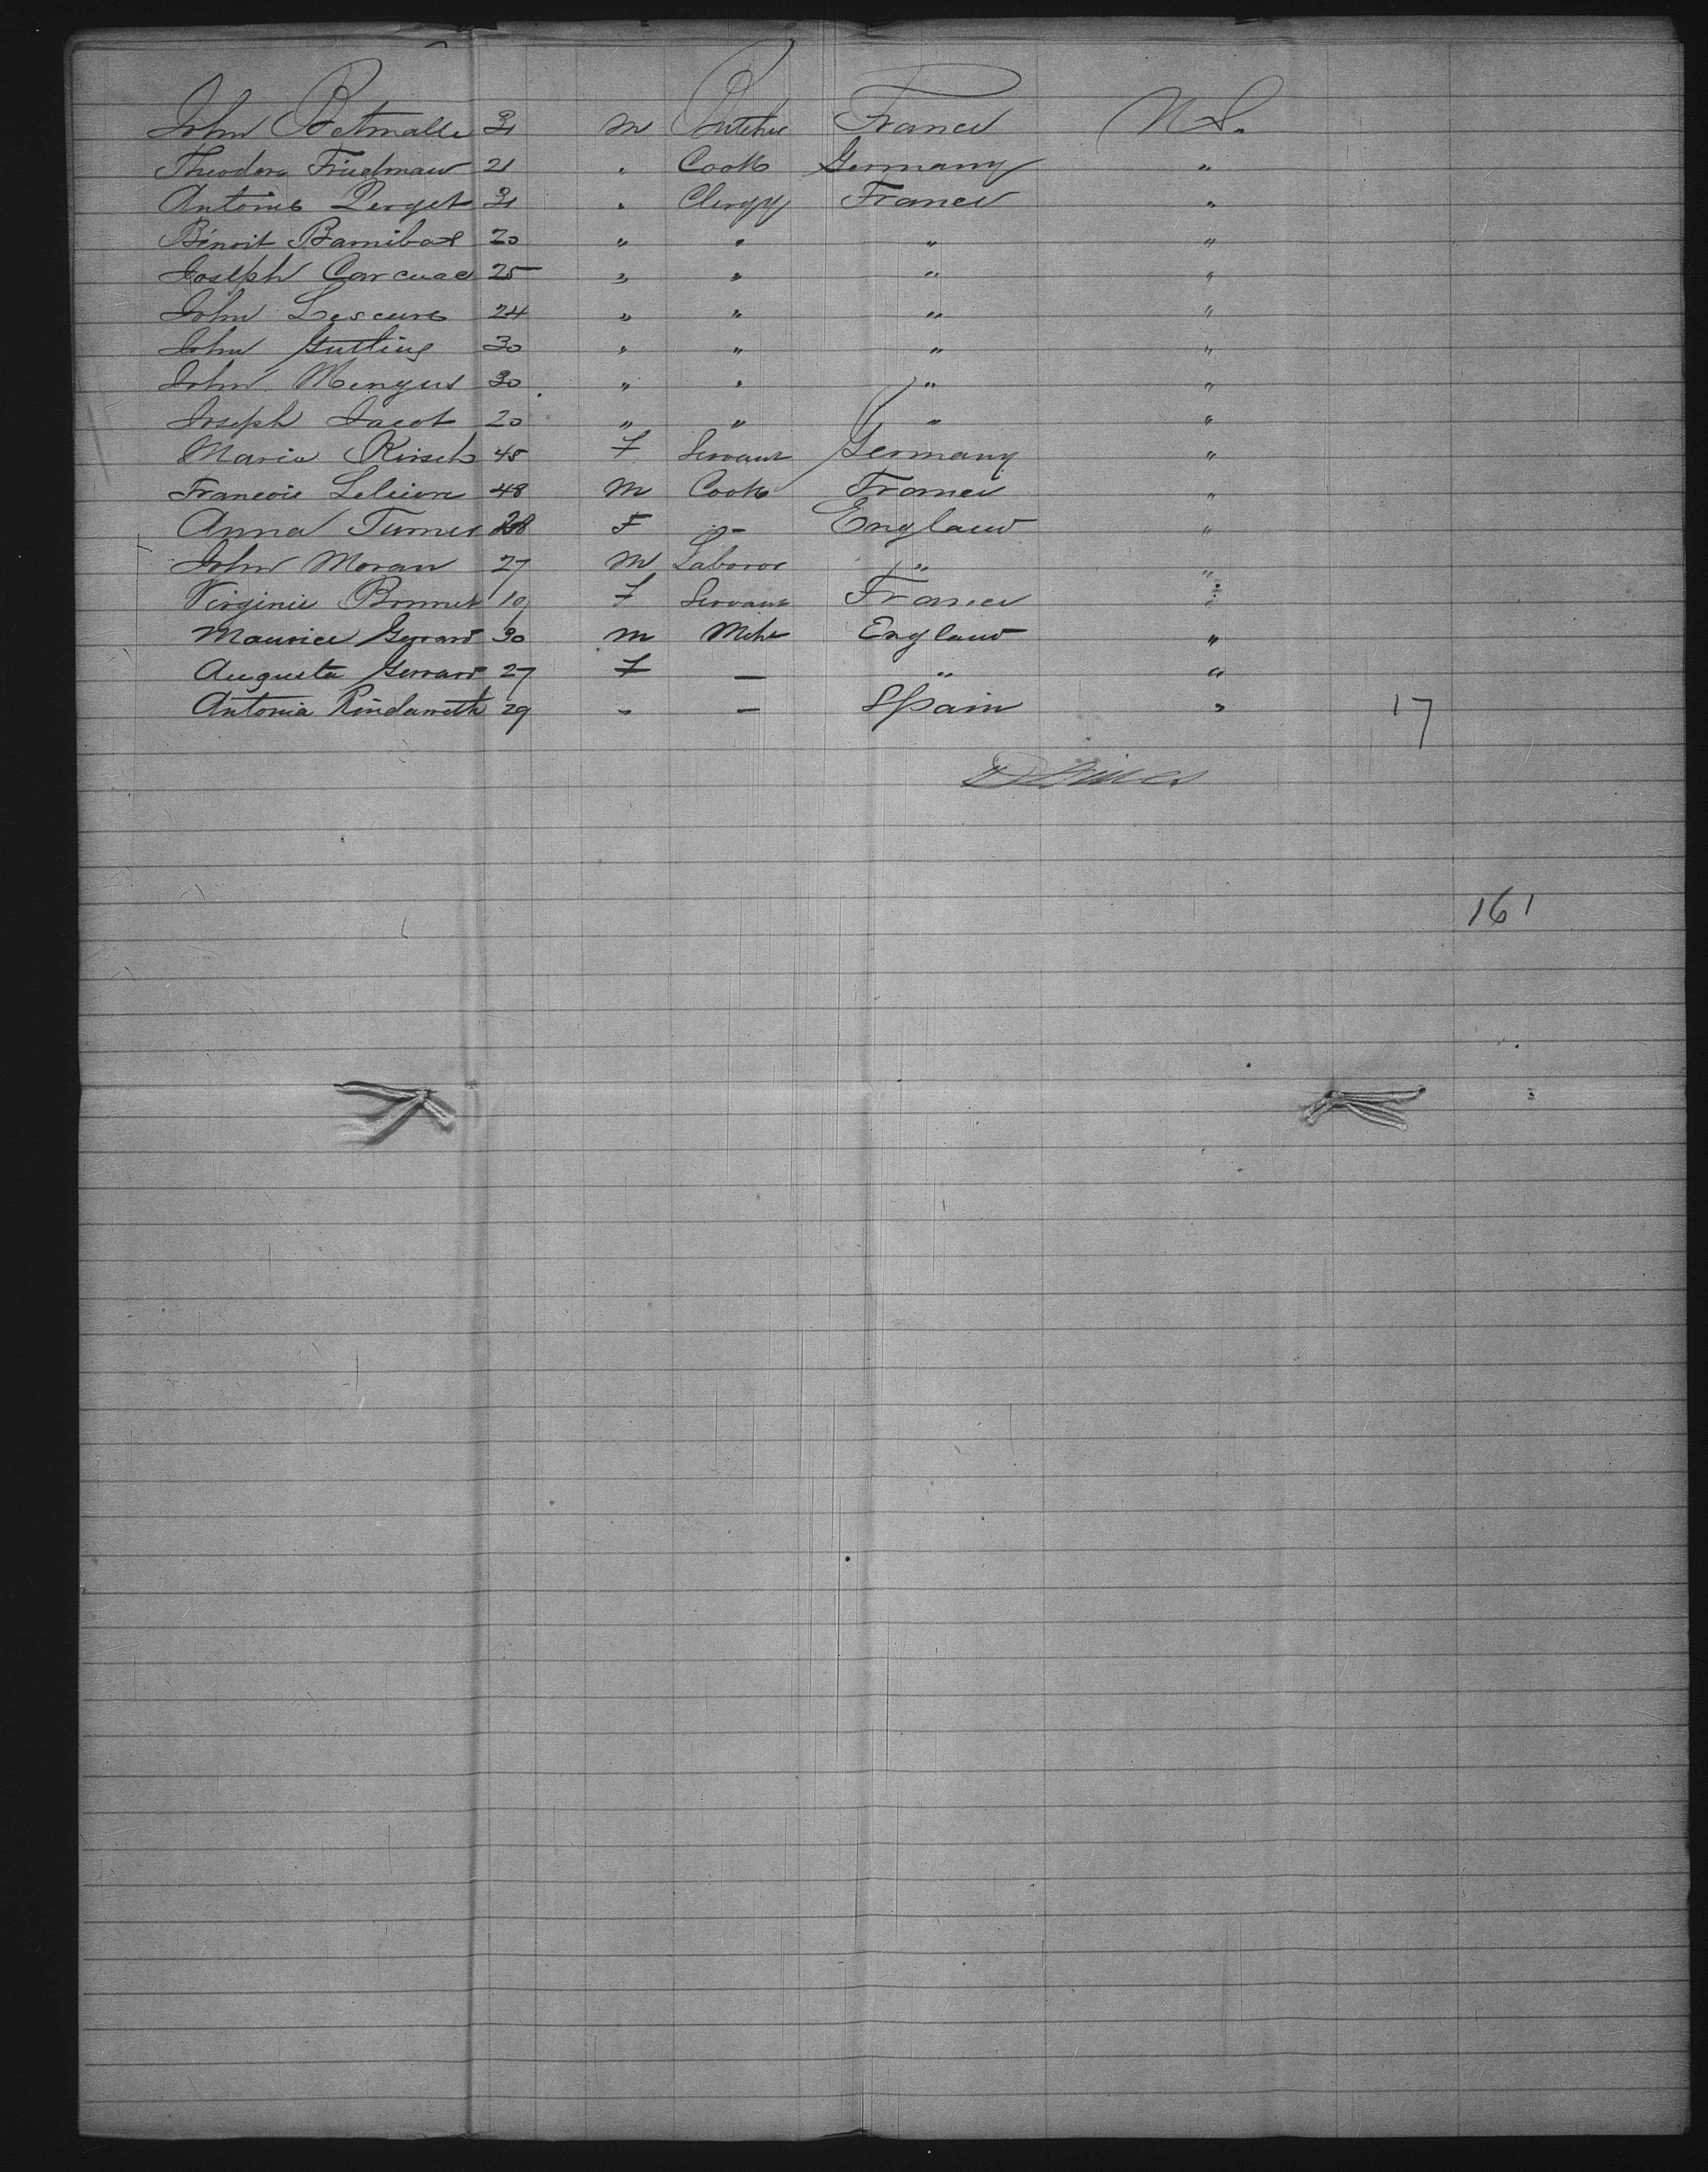 John Betmalle 31 M Butcher France U.S.
Theodore Friedman 21 " Cook Germany "
Antoine Perget 31 " Clergy France "
Bénoit Barnibal 20 " " " "
Joseph Carcuac 25 " " " "
John Lescure 24 " " " "
John Gutting 30 " " " "
John Mengus 30 " " " "
Joseph Jacot 20 " " " "
Maria Kirsch 45 F Servant Germany "
Francois Lelievre 48 M Cook France "
Anna Turner 28 F - England "
John Moran 27 M Laborer " "
Virginie Bonnet 19 F Servant France "
Maurice Gerrard 30 M Mcht England "
Augusta Gerrard 27 F — " "
Antonia 29 " — Spain " 17
161